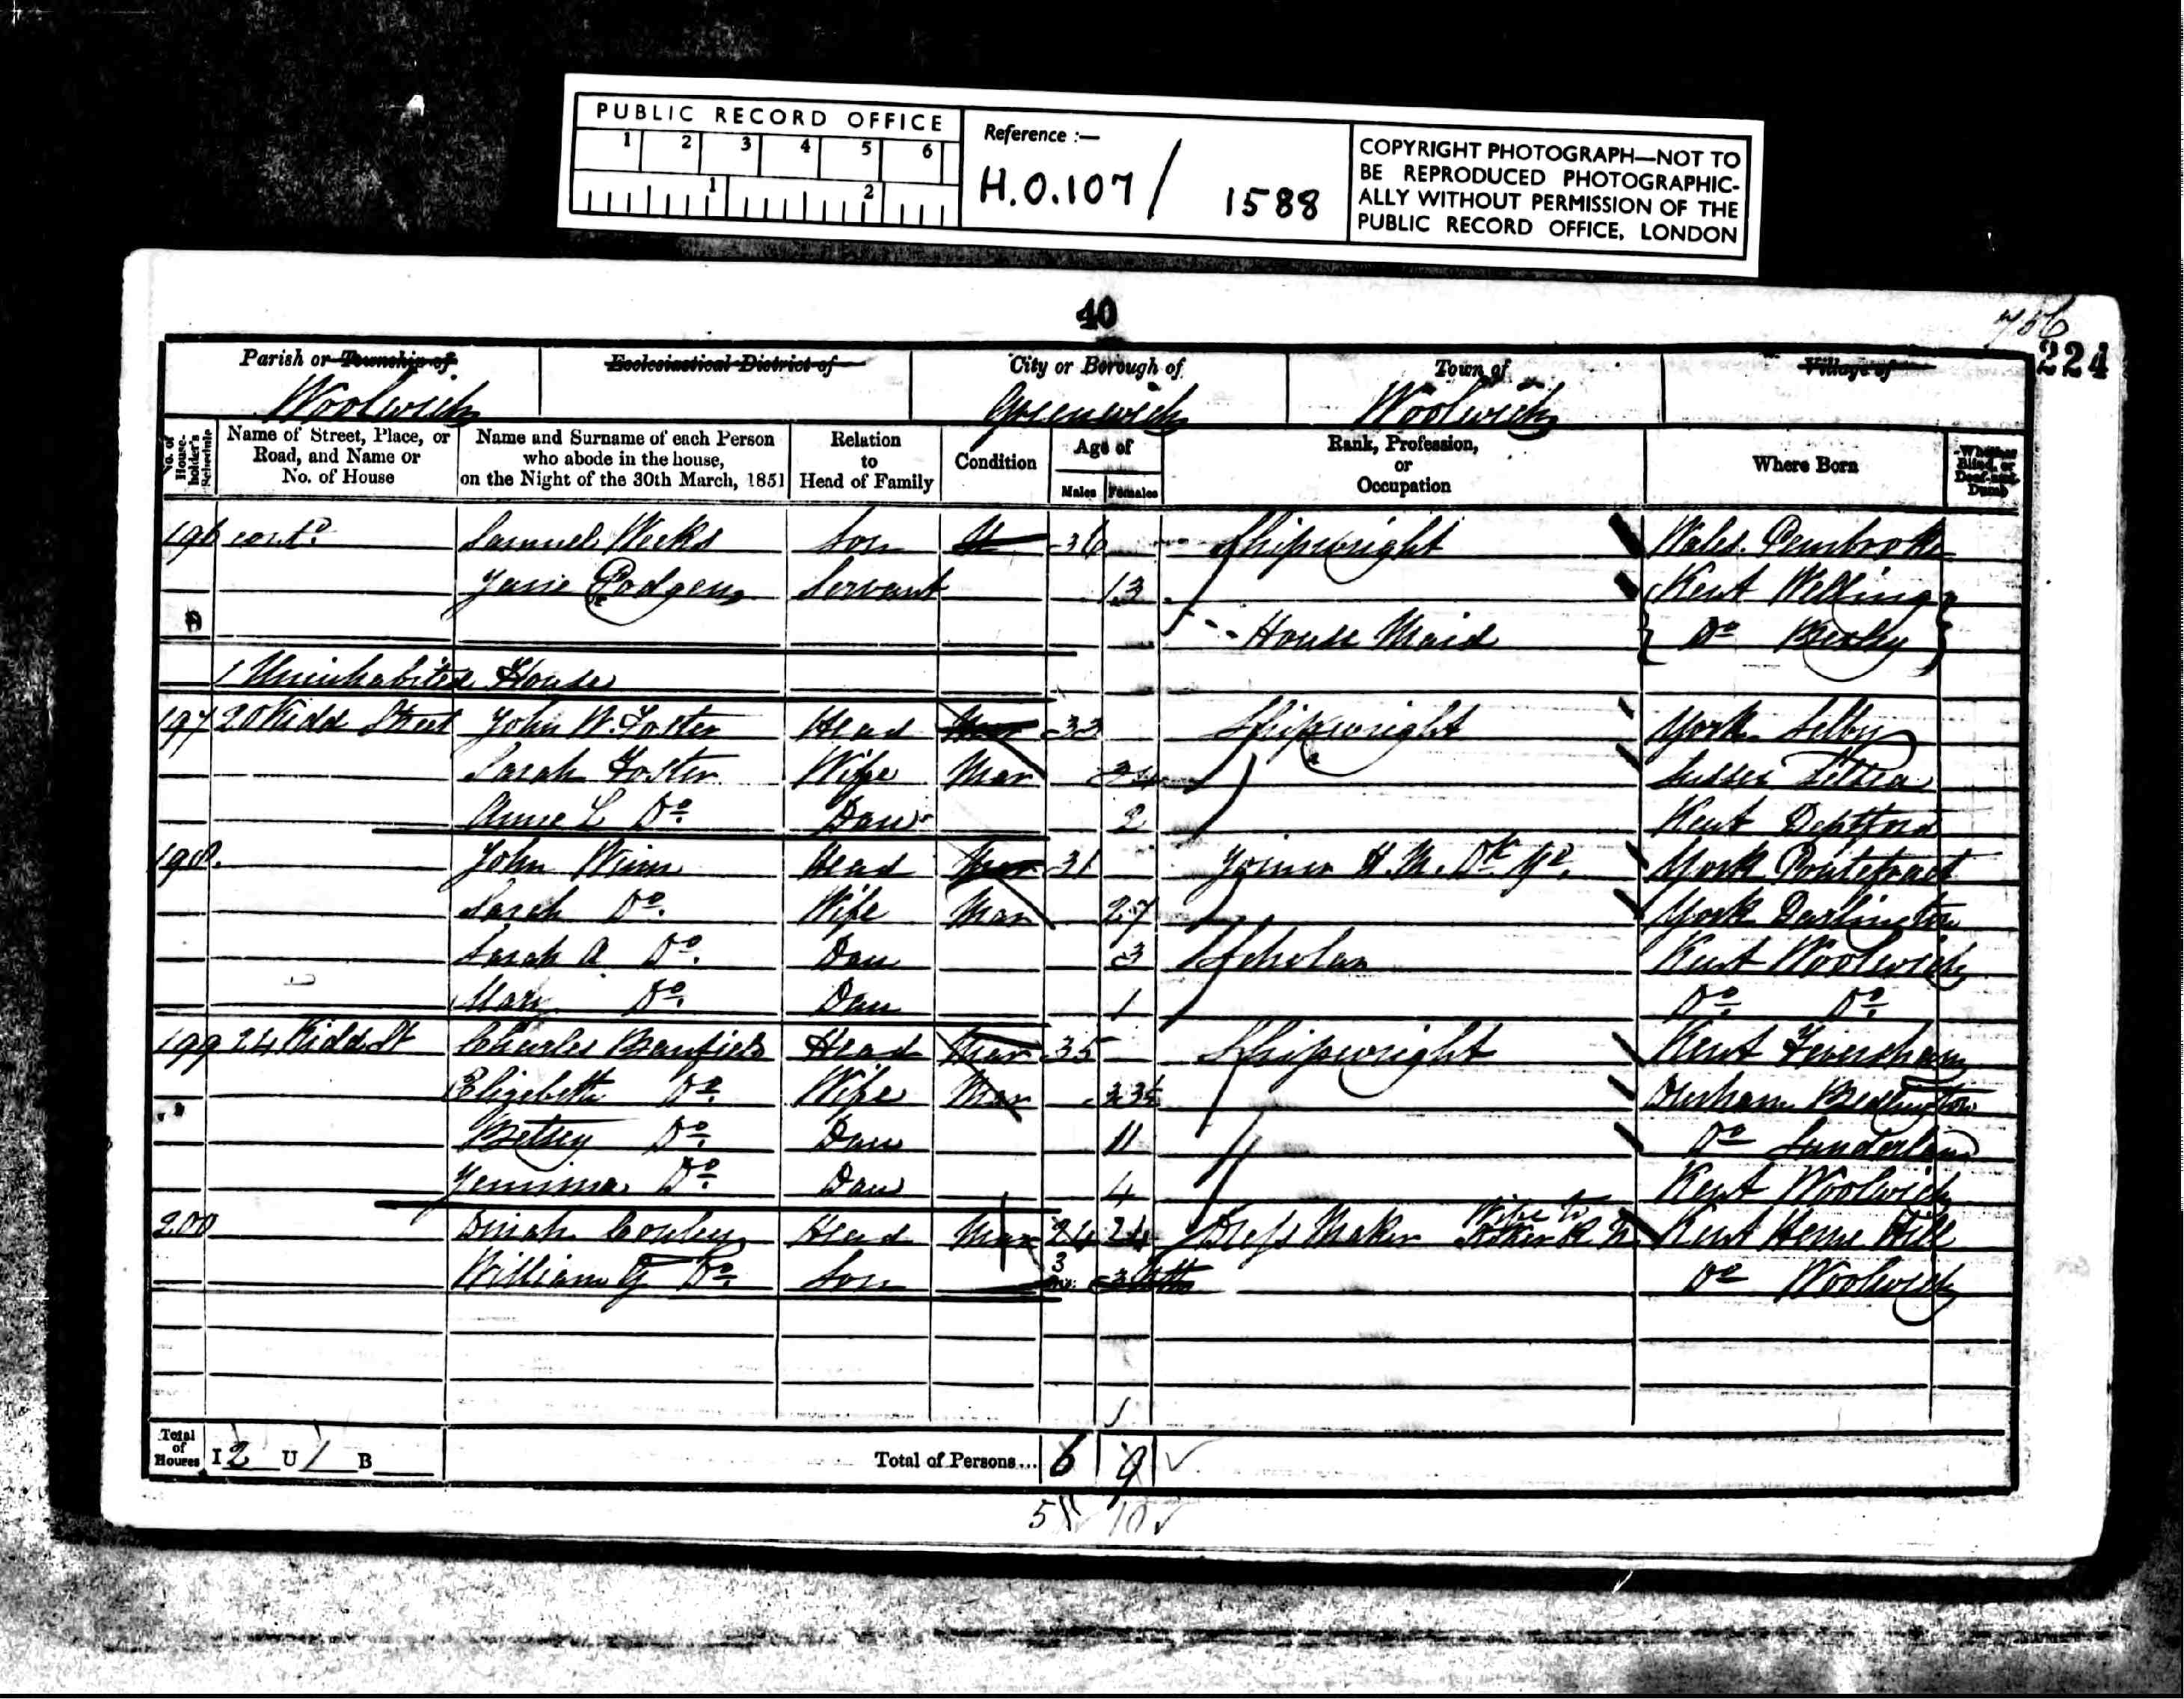 PUBLIC RECORD OFFICE
1 2 3 4 5 6
1 2
Reference :—
H.O.107/ 1588
COPYRIGHT PHOTOGRAPH—NOT TO
BE REPRODUCED PHOTOGRAPHIC-
ALLY WITHOUT PERMISSION OF THE
PUBLIC RECORD OFFICE, LONDON
40
756
224
Parish or Township of Ecclesiastical District of City or Borough of Town of Village of
Woolwich Greenwich Woolwich
No. of House-holder's Schedule
Name of Street, Place, or Road, and Name or No. of House
Name and Surname of each Person who abode in the house, on the Night of the 30th March, 1851
Relation to Head of Family
Condition
Age of
Males Females
Rank, Profession, or Occupation
Where Born
Whether Blind, or Deaf-and-Dumb
196 cont.d Samuel Weeks Son 36 Shipwright Wales Pembroke
Jane Servant 13 Kent Welling
House Maid Do Bexley
1 Uninhabited House
197 20 Kidd Street John W. Foster Head Mar 33 Shipwright York Selby
Sarah Foster Wife Mar Sussex
Anne L Do. Dau 2 Kent Deptford
198. John Head Mar 31 Joiner H.M. Dk Yd. York Pontefract
Sarah Do. Wife Mar 27 York Darlington
Sarah A Do. Dau 3 Scholar Kent Woolwich
Mary Do. Dau 1 Do. Do.
199 24 Kidd St Charles Banfield Head Mar 35 Shipwright Kent Feversham
Elizabeth Do. Wife Mar Durham Bedlington
Betsey Do. Dau 11 Do Sunderland
Jemima Do. Dau 4 Kent Woolwich
Wife to
200 Dinah Cowley Head Mar 24 24 Dress Maker Stoker R N Kent Herne Hill
William G Do. Son 3 mo. Do Woolwich
Total of Houses I 2 U 1 B Total of Persons... 6 9
5 10